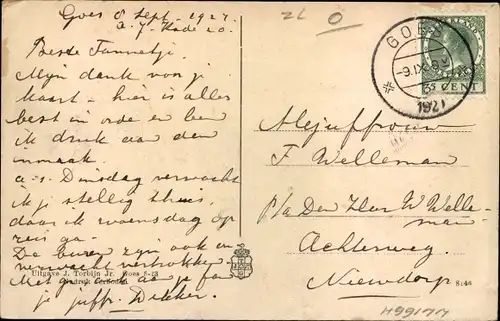 Goes 8 Sept. 1927.
A. J. Kade 20.
Beste Tannetje.
Mijn dank voor je
kaart – hier is alles
best in orde en ben
ik druk aan den
inmaak.
a.s. Dinsdag verwacht
ik je stellig thuis,
daar ik woensdag op
reis ga.
De buren zijn ook en
verwacht vertrokken.
Met groeten aan je fam
je juffr. Dekker.
Uitgave J. Torbijn Jr. Goes 8-28
GOES
9.IX
1927
5 CENT
Mejuffrouw
F Welleman
p/a Den Heer W Welle-
man
Achterweg.
Nieuwdorp
8:44
H991714